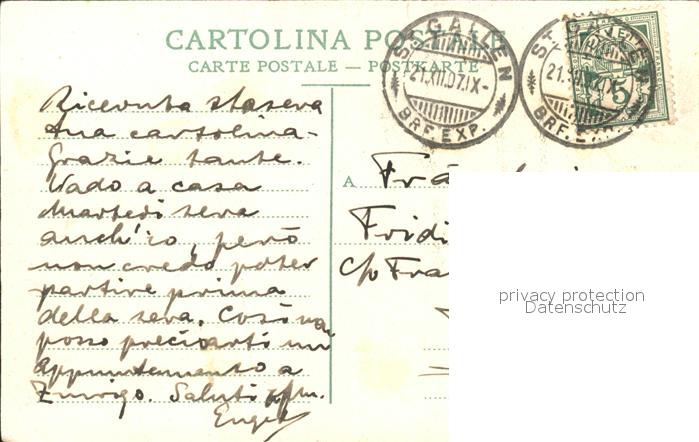 CARTOLINA POSTALE
CARTE POSTALE — POSTKARTE
ST. GALLEN
21.XII.07.IX-
BRF. EXP.
ST. GALLEN
21.
BRF. E
5
Ricevuta stasera
tua cartolina -
Grazie tante.
Vado a casa
Martedì sera
anch'io, però
non credo poter
partire prima
della sera. Così
posso precisarti un
appuntamento a
Zurigo. Saluti
A Frä
Fridi
c/o Fra
privacy protection
Datenschutz